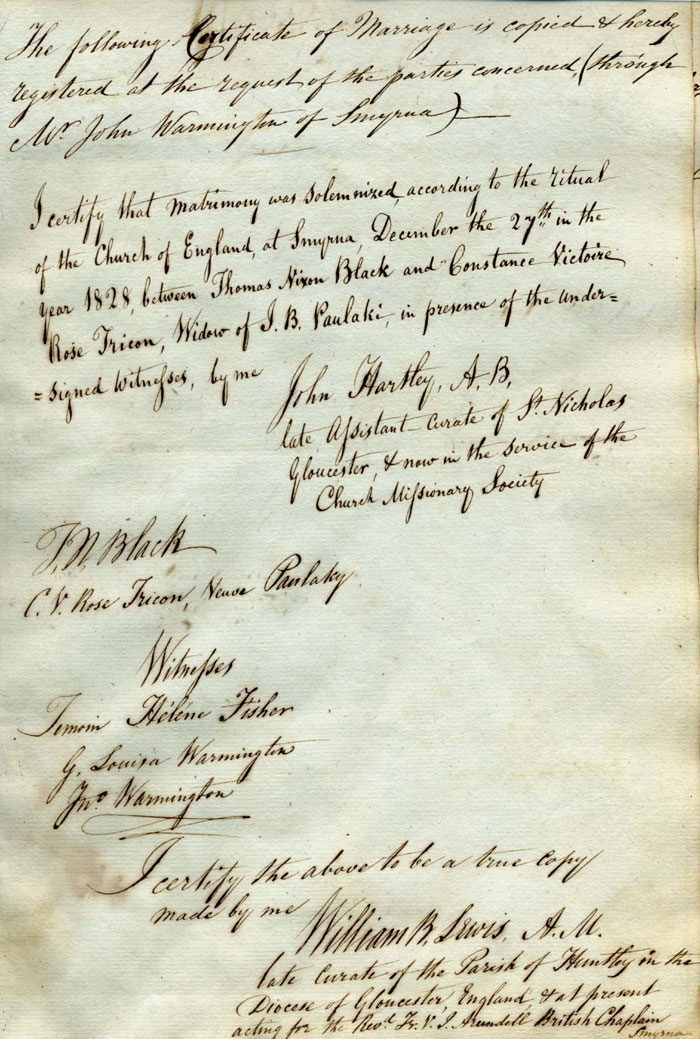 The following Certificate of Marriage is copied & hereby
registered at the request of the parties concerned, (through
Mr John Warmington of Smyrna)
I certify that Matrimony was solemnized, according to the ritual
of the Church of England, at Smyrna, December the 27th in the
year 1828, between Thomas Nixon Black and Constance Victoire
Rose Tricon, Widow of J. B. Paulaki, in presence of the under=
=signed Witnesses, by me
John Hartley, A. B,
late Assistant-Curate of St. Nicholas
Gloucester, & now in the service of the
Church Missionary Society
T. N. Black
C. V. Rose Tricon, Veuve Paulaky
Witnesses
Temoin Hélène Fisher
G. Louisa Warmington
Jno Warmington
I certify the above to be a true copy
made by me
William B. Lewis, A. M.
late Curate of the Parish of Huntley in the
Diocese of Gloucester, England, & at present
acting for the Revd. Fr. V. J. Arundell British Chaplain
Smyrna